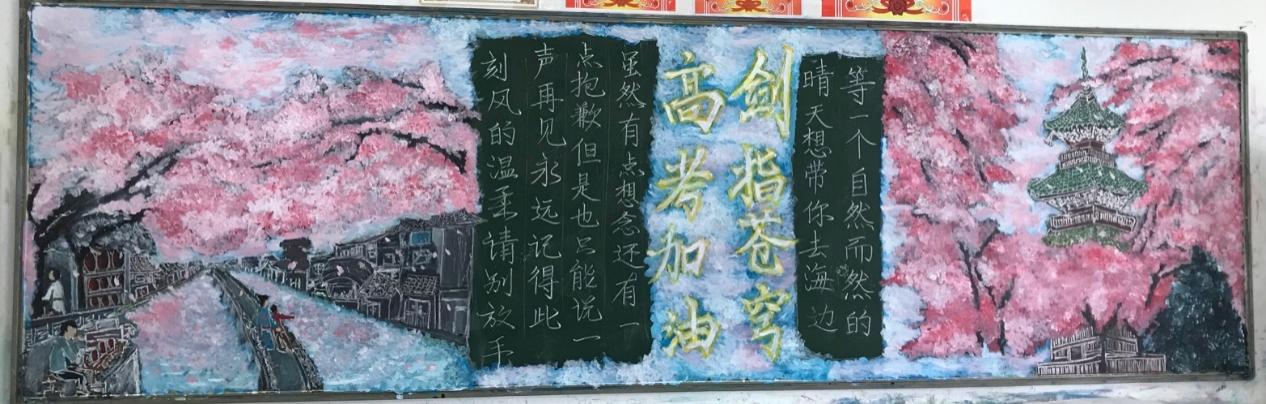 等一个自然而然的
晴天想带你去海边
剑指苍穹
高考加油
虽然有点想念还有一
点抱歉但是也只能说一
声再见永远记得此
刻风的温柔请别放手